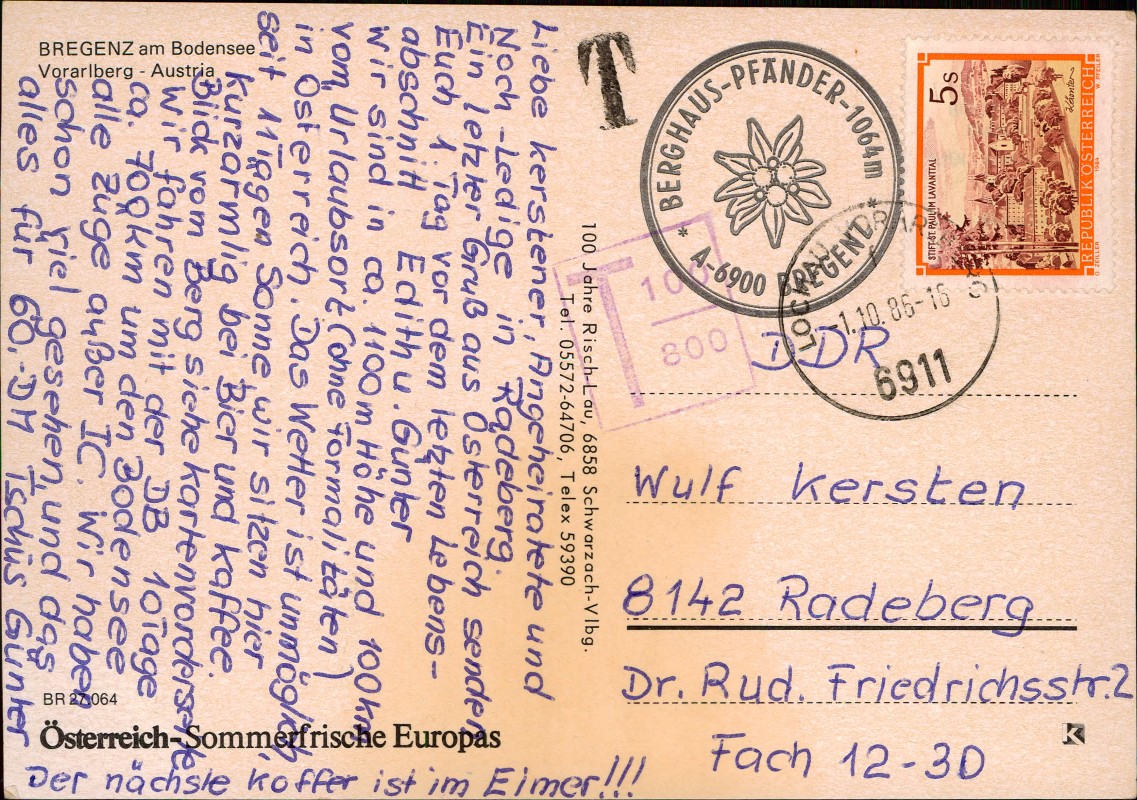 BREGENZ am Bodensee
Vorarlberg - Austria
Liebe Kerstener, Angeheiratete und
Noch-Ledige in Radeberg.
Ein letzter Gruß aus Österreich senden
Euch 1. Tag vor dem letzten Lebens-
abschnitt Edith u. Günter
wir sind in ca. 1100m Höhe und 100km
vom Urlaubsort (ohne Formalitäten)
in Österreich. Das Wetter ist unmöglich,
seit 11 Tagen Sonne wir sitzen hier
Kurzarmlig bei Bier und Kaffee.
Blick vom Berg siehe Kartenvorderseite,
Wir fahren mit der DB 10 Tage
ca. 700km um den Bodensee
alle Züge außer IC. Wir haben
schon viel gesehen und das
alles für 60,-DM Tschüs Günter
Der nächste Koffer ist im Eimer!!!
BR 27 064
Österreich-Sommerfrische Europas
100 Jahre Risch-Lau, 6858 Schwarzach-Vlbg.
Tel. 05572-64706, Telex 59390
T
* BERGHAUS-PFÄNDER-1064m *
A-6900 BREGENZ
5s
STIFT ST. PAUL IM LAVANTTAL
Kärnten
REPUBLIK ÖSTERREICH
1984
LOCHAU
-1.10.86-16
6911
T 100
800
DDR
Wulf Kersten
8142 Radeberg
Dr. Rud. Friedrichsstr. 2
Fach 12-30
K